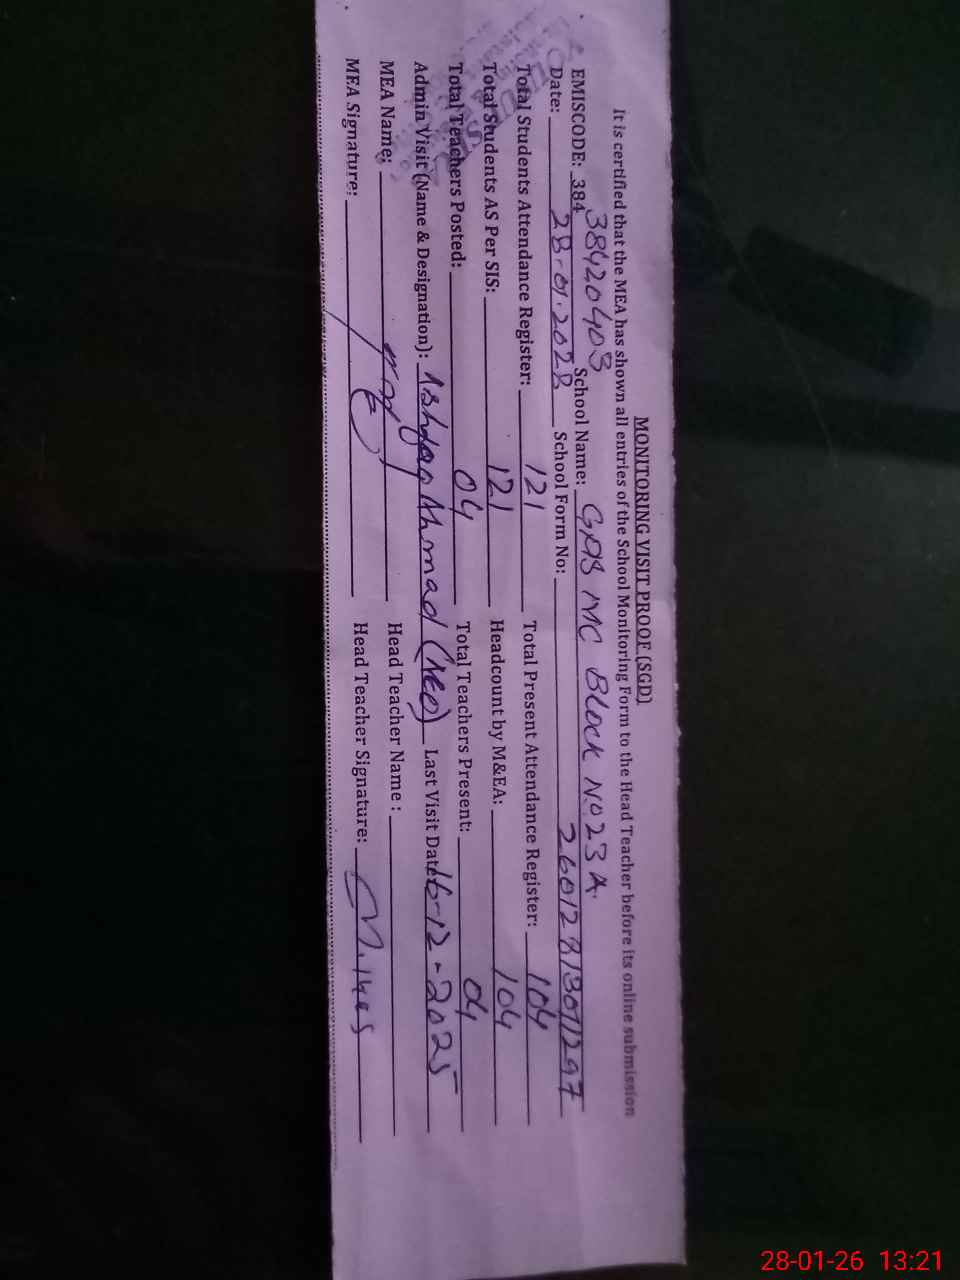 MONITORING VISIT PROOF (SGD)
It is certified that the MEA has shown all entries of the School Monitoring Form to the Head Teacher before its online submission
EMISCODE: 384 38420403 School Name: GPS MC Block No 23 A.
Date: 28-01-2028 School Form No: 26012813011297
Total Students Attendance Register: 121 Total Present Attendance Register: 104
Total Students AS Per SIS: 121 Headcount by M&EA: 104
Total Teachers Posted: 04 Total Teachers Present: 04
Admin Visit (Name & Designation): Ishfaq Ahmad (AEO) Last Visit Date 16-12-2025
MEA Name: Head Teacher Name :
MEA Signature: Head Teacher Signature:
28-01-26 13:21